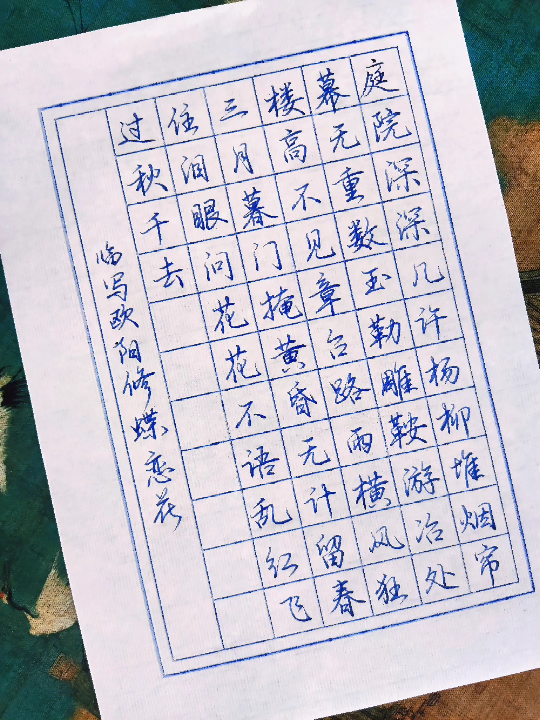 庭院深深几许杨柳堆烟帘
幕无重数玉勒雕鞍游冶处
楼高不见章台路雨横风狂
三月暮门掩黄昏无计留春
住泪眼问花花不语乱红飞
过秋千去
临写欧阳修蝶恋花